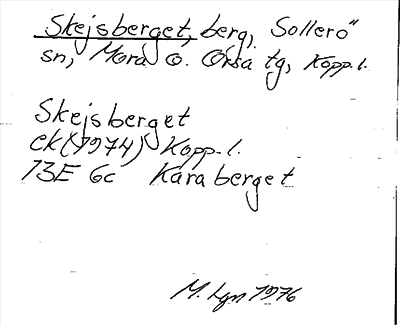 Skejsberget, berg, Sollerö
sn, Mora o. Orsa tg, Kopp.l.
Skejsberget
ek (1974) Kopp.l.
13E 6c Karaberget
M. Lgn 1976